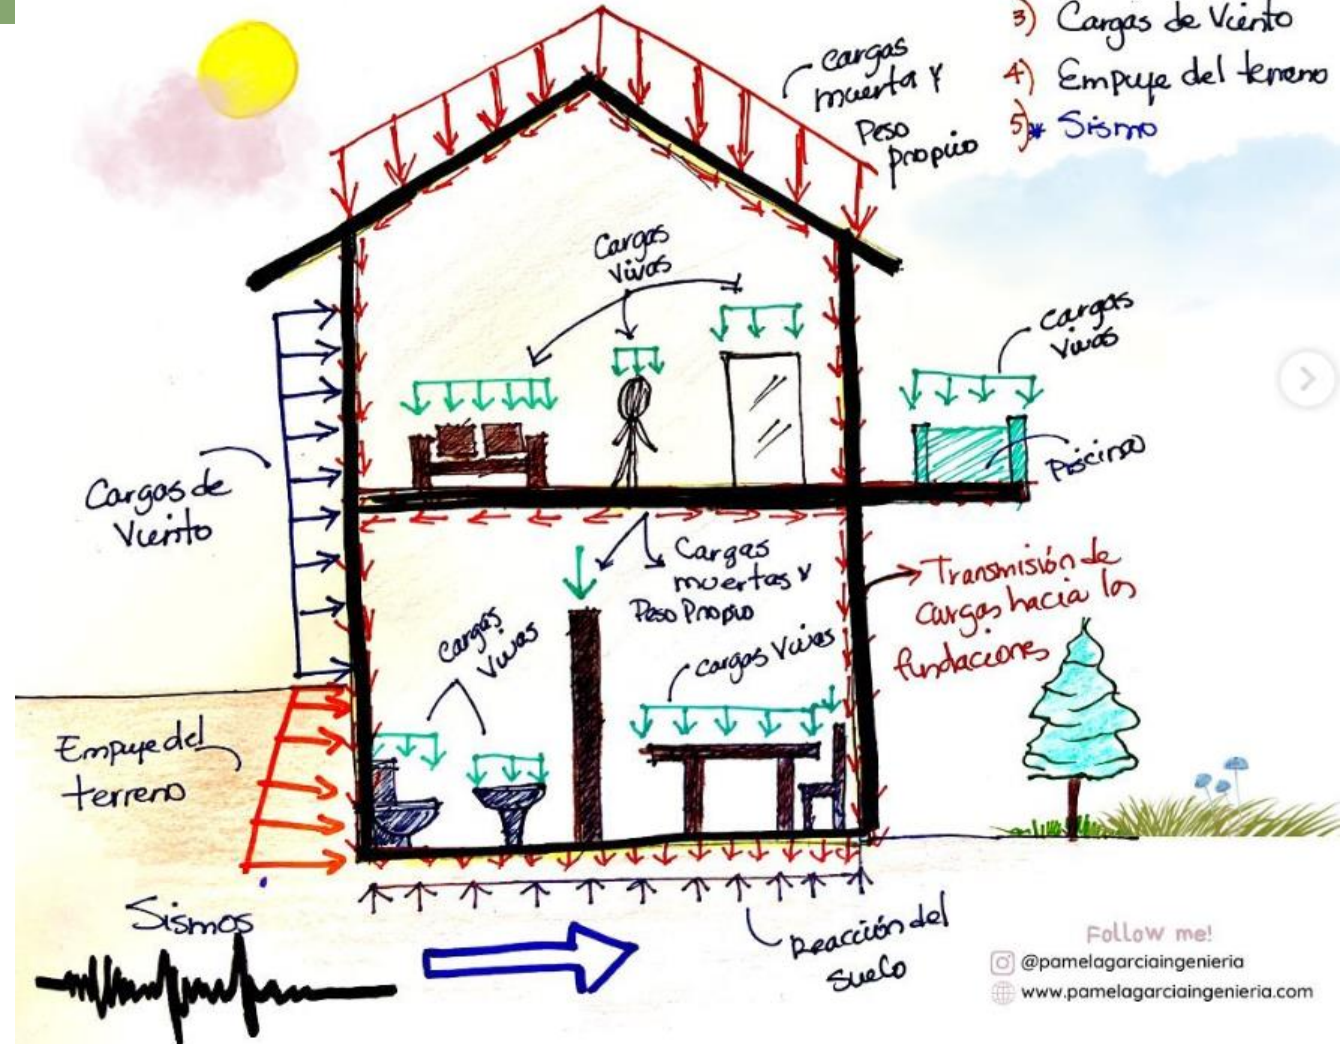 3) Cargas de Viento
4) Empuje del terreno
5)* Sismo
Cargas
muerta y
Peso
propio
Cargas
Vivas
Cargas
Vivas
Piscina
Cargas de
Viento
Cargas
muertas y
Peso Propio
Transmisión de
Cargas hacia las
fundaciones
Cargas
Vivas
Cargas Vivas
Empuje del
terreno
Sismos
Reacción del
suelo
Follow me!
@pamelagarciaingenieria
www.pamelagarciaingenieria.com